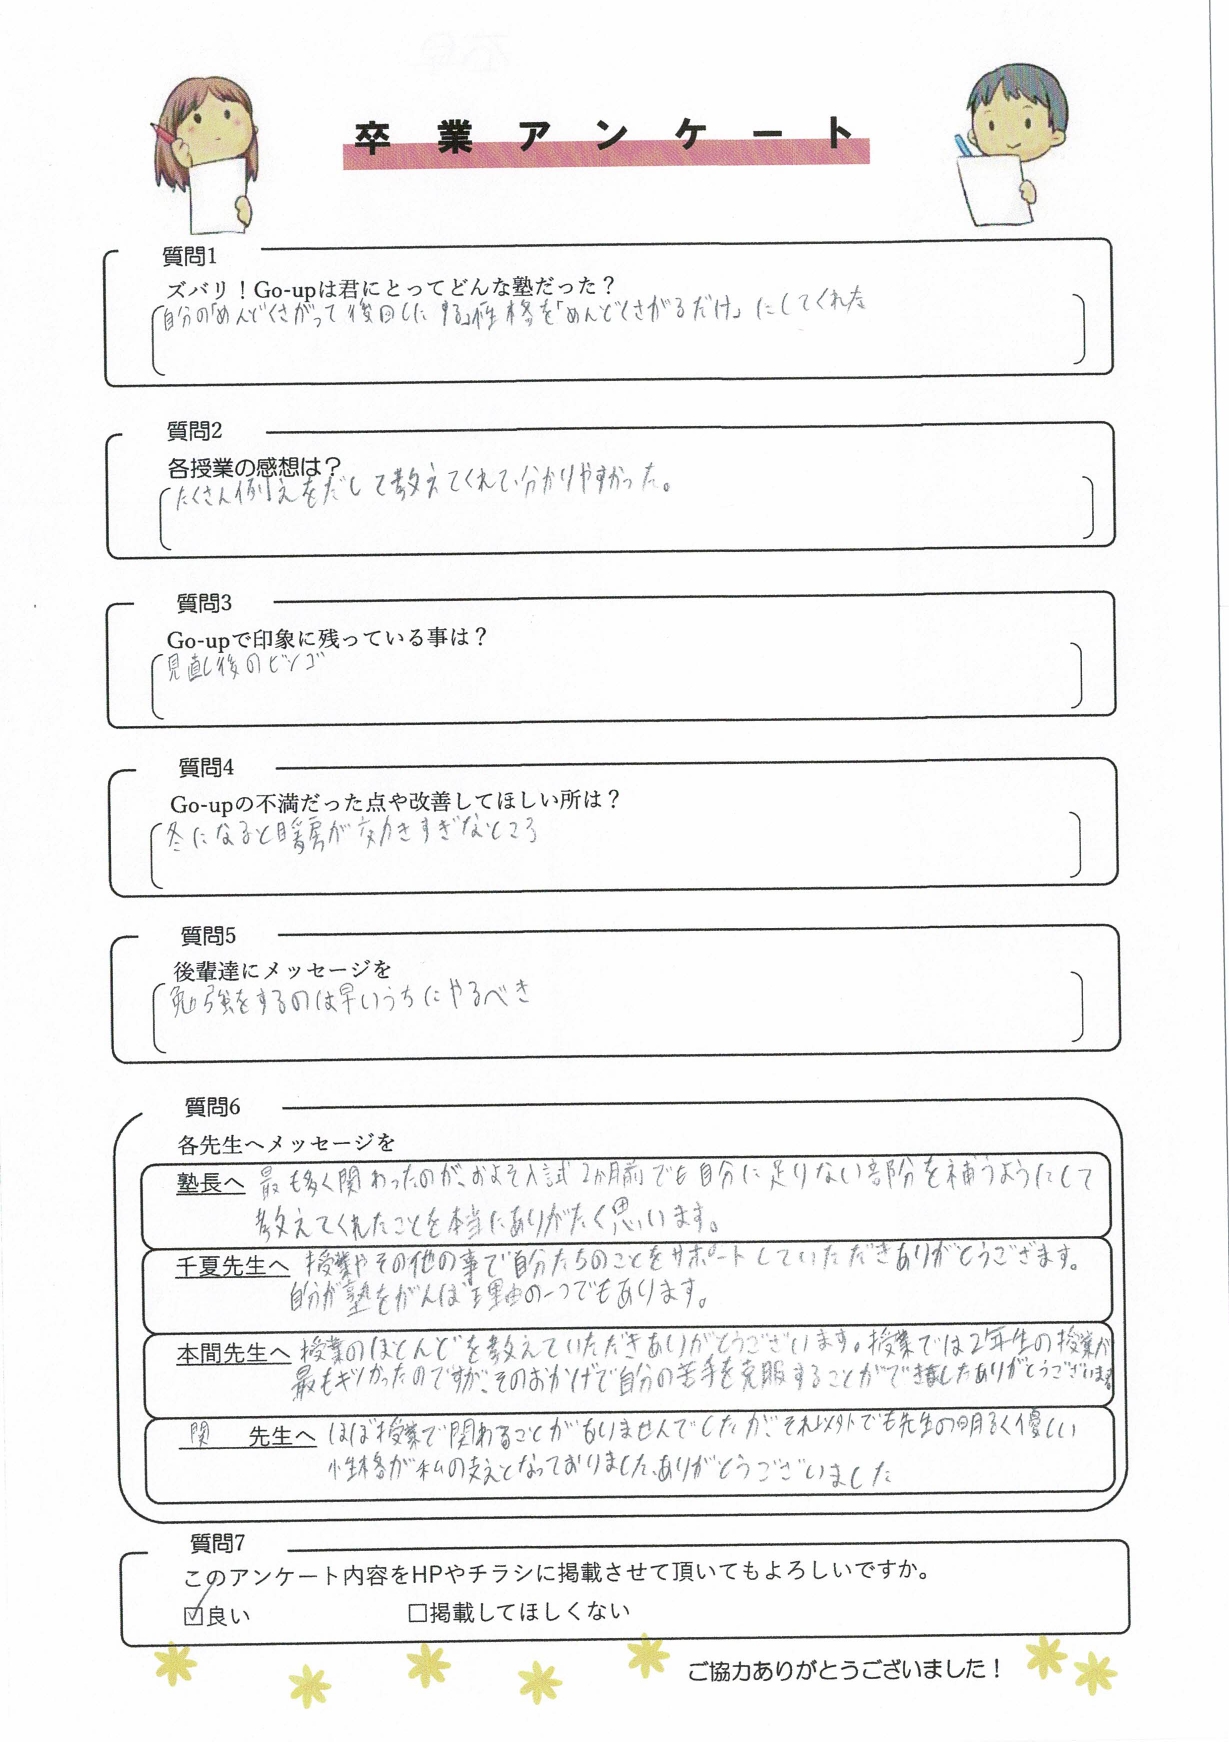 卒業アンケート
質問1
ズバリ！Go-upは君にとってどんな塾だった？
自分の「めんどくさがって後回しにする」性格を「めんどくさがるだけ」にしてくれた
質問2
各授業の感想は？
たくさん例えをだして教えてくれて分かりやすかった。
質問3
Go-upで印象に残っている事は？
見直し後のビンゴ
質問4
Go-upの不満だった点や改善してほしい所は？
冬になると暖房が効きすぎなところ
質問5
後輩達にメッセージを
勉強をするのは早いうちにやるべき
質問6
各先生へメッセージを
塾長へ 最も多く関わったのが、およそ入試2か月前でも自分に足りない部分を補うようにして
教えてくれたことを本当にありがたく思います。
千夏先生へ 授業やその他の事で自分たちのことをサポートしていただきありがとうござます。
自分が塾をがんばる理由の一つでもあります。
本間先生へ 授業のほとんどを教えていただきありがとうございます。授業では2年生の授業が
最もキツかったのですが、そのおかげで自分の苦手を克服することができましたありがとうございます
関 先生へ ほぼ授業で関わることがありませんでしたが、それ以外でも先生の明るく優しい
性格が私の支えとなっておりました、ありがとうございました
質問7
このアンケート内容をHPやチラシに掲載させて頂いてもよろしいですか。
☑良い □掲載してほしくない
ご協力ありがとうございました！